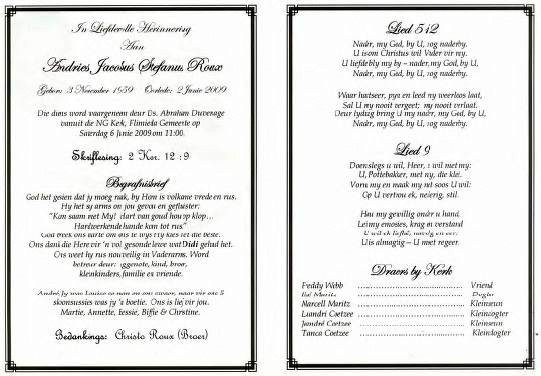 In Liefdevolle Herinnering
Aan
Andries Jacobus Stefanus Roux
Gebore: 3 November 1959 Oorlede: 2 Junie 2009
Die diens word waargeneem deur Ds. Abraham Duvenage
vanuit die NG Kerk, Elimieda Gemeente op
Saterdag 6 Junie 2009 om 11:00.
Skriflesing: 2 Kor. 12:9
Begrafnisbrief
God het gesien dat jy moeg raak, by Hom is volkane vrede en rus.
Hy het sy arms om jou gevou en gefluister:
"Kom saam met My! hart van goud hou op klop…
Hardwerkende hande kom tot rus"
God breek ons harte om ons te wys Hy kies vir die beste.
Ons dank die Here vir 'n vol gesonde lewe wat Didi gehad het.
Ons weet hy rus nou veilig in Vaderarms. Word
betreur deur: eggenote, kind, broer,
kleinkinders, familie en vriende.
skoonsussies was jy 'n boetie. Ons is lief vir jou.
Martie, Annette, Eessie, Biffie & Christine.
Bedankings: Christo Roux (Broer)
Lied 512
Nader, my God, by U, nog naderby.
U is om Christus wil Vader vir my.
U liefde bly my by – nader, my God, by U,
Nader, my God, by U, nog naderby.
Waar hartseer, pyn en leed my weerloos laat,
Sal U my nooit vergeet; my nooit verlaat.
Deur lyding bring U my nader, my God, by U,
Nader, my God, by U, nog naderby.
Lied 9
Doen slegs u wil, Heer, u wil met my:
U, Pottebakker, met my, die klei.
Vorm my en maak my net soos U wil:
Op U vertrou ek, nederig, stil.
Hou my gewillig onder u hand,
Lei my emosies, krag en verstand
U wil ek liefhê, navolg en eer:
U is almagtig – U moet regeer.
Draers by Kerk
Feddy Webb Vriend
Marcell Maritz Kleinseun
Luandri Coetzee Kleindogter
Jandré Coetzee Kleinseun
Tanca Coetzee Kleindogter